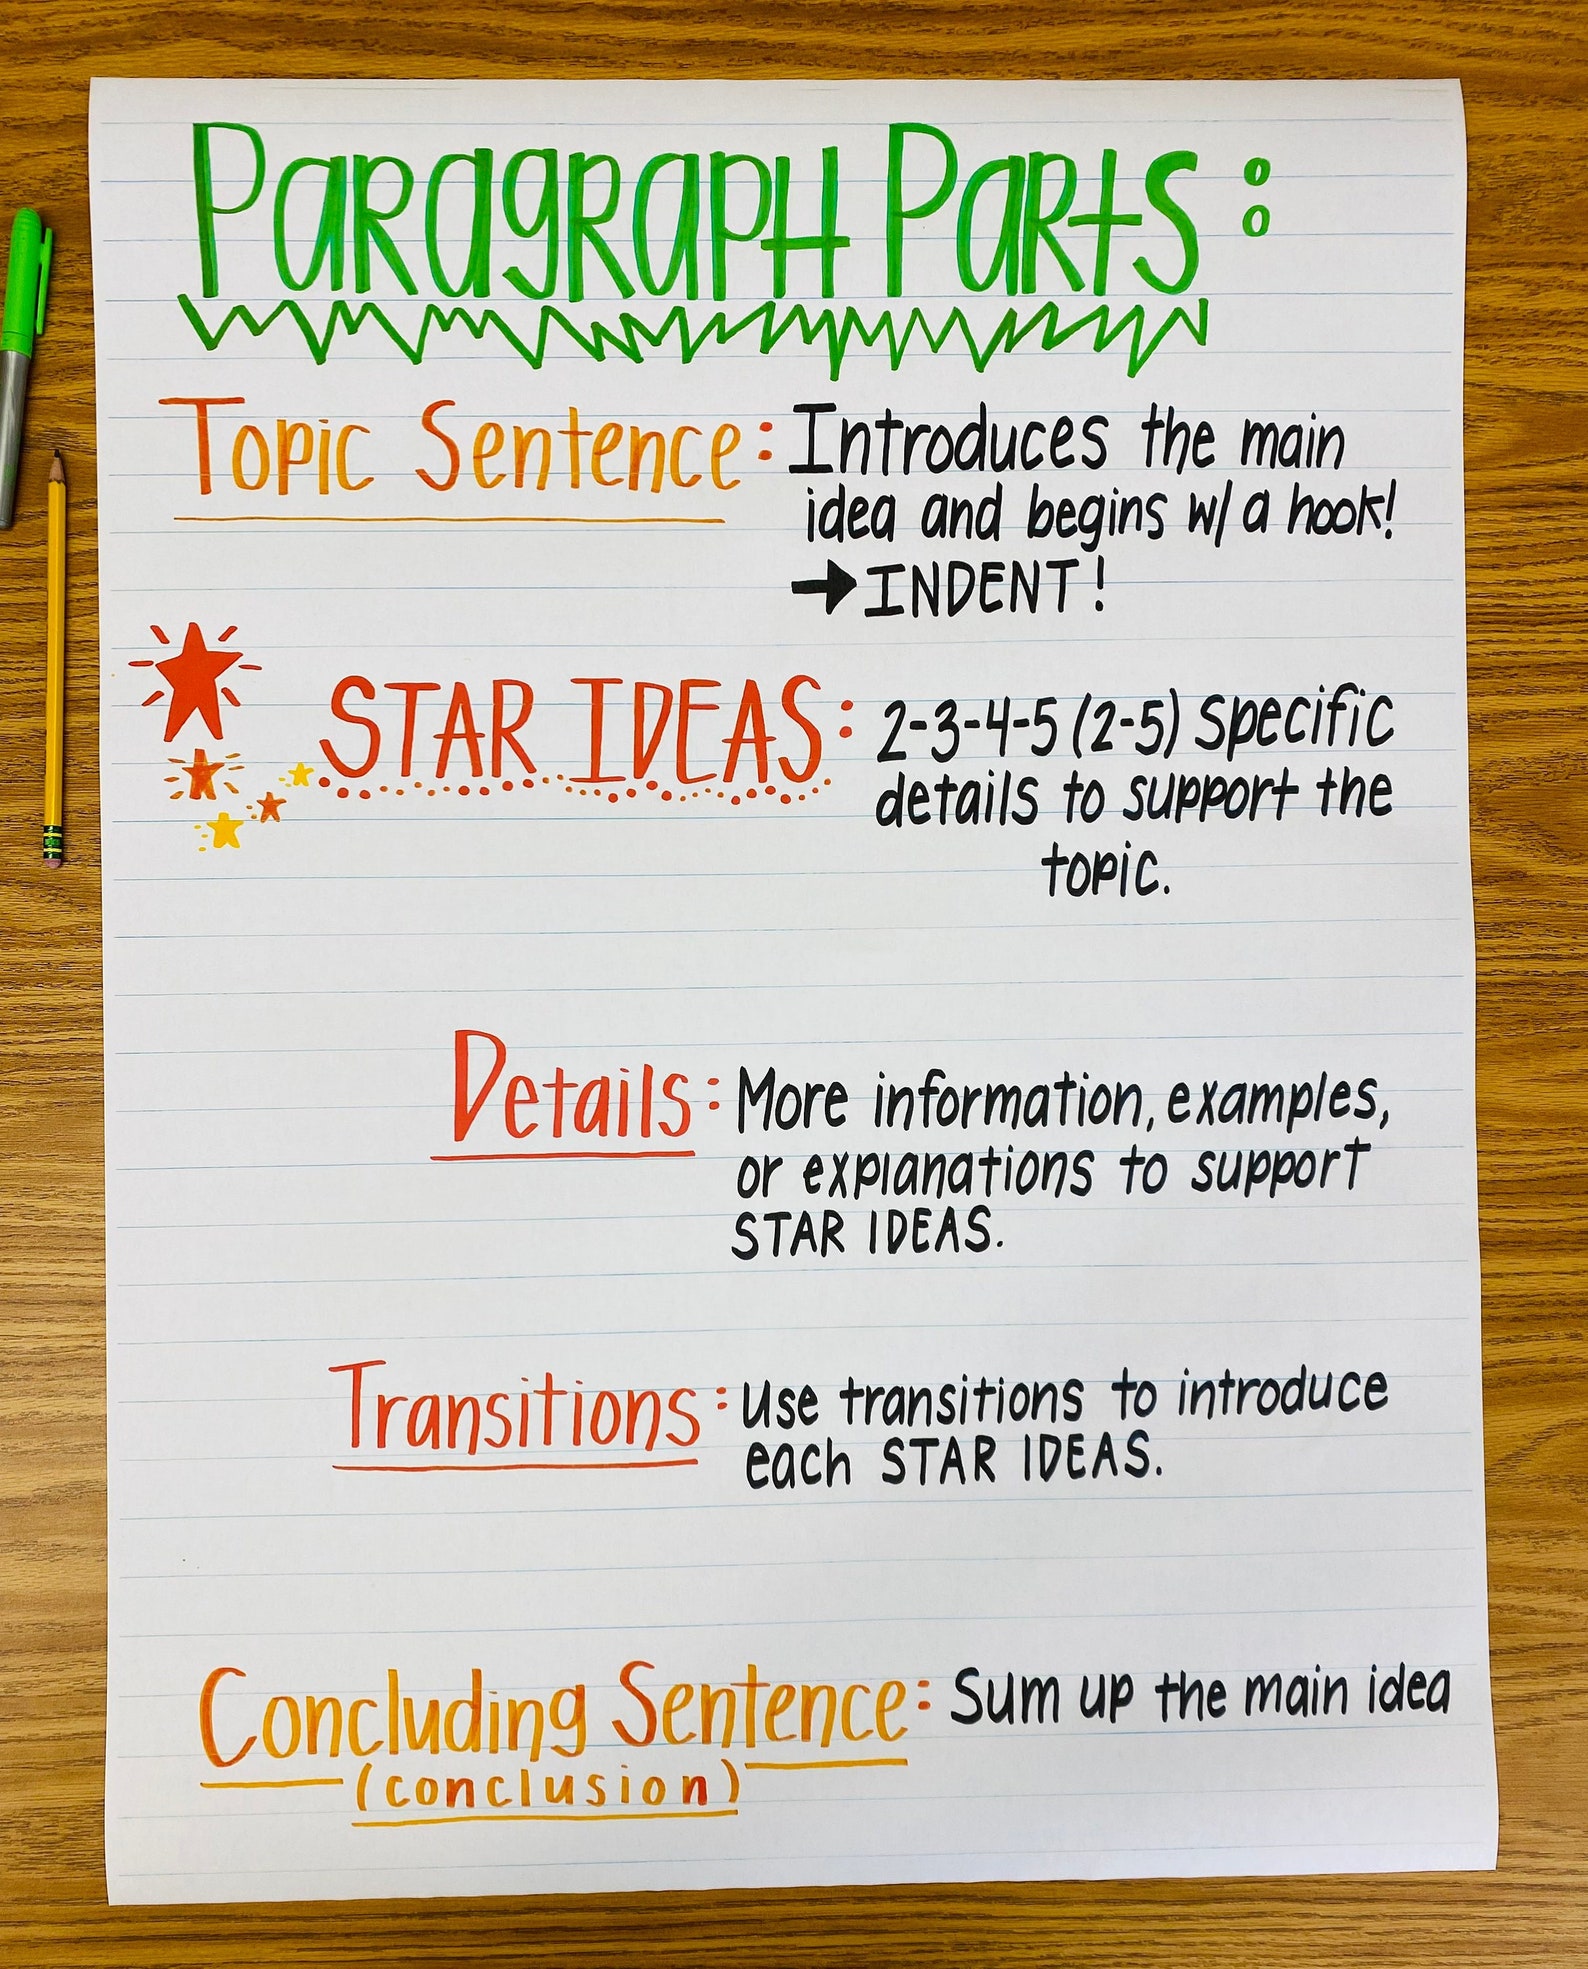 Paragraph Parts:
Topic Sentence: Introduces the main
idea and begins w/ a hook!
→ INDENT!
STAR IDEAS: 2-3-4-5 (2-5) specific
details to support the
topic.
Details: More information, examples,
or explanations to support
STAR IDEAS.
Transitions: Use transitions to introduce
each STAR IDEAS.
Concluding Sentence: Sum up the main idea
(conclusion)